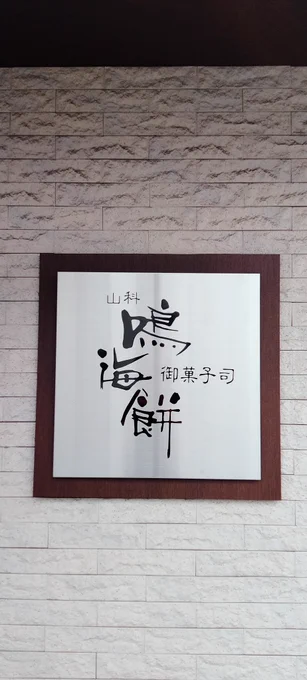 山科
鳴海餅
御菓子司